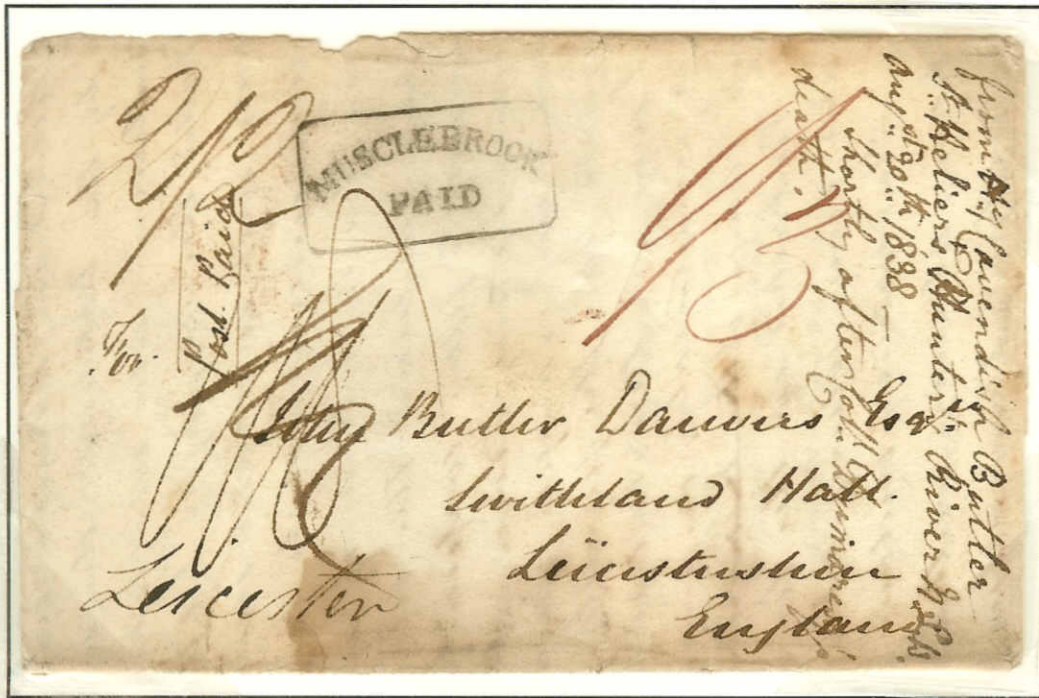 2/2
MUSCLEBROOK
PAID
Post Paid
For
John Butler Danvers Esqr.
Swithland Hall.
Leicestershire
England
Leicester
from Hy. Cavendish Butler
St. Heliers, Hunters River
Augst. 20th. 1838
Shortly after Coll.
death.